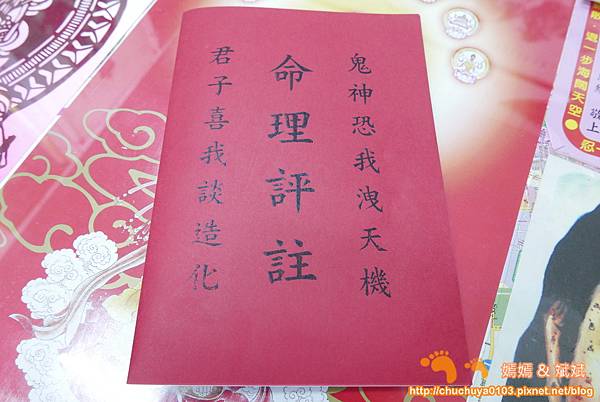 鬼神恐我洩天機
命理評註
君子喜我談造化
退一步海闊天空
忍一
敬
上
嫣嫣 & 斌斌
http://chuchuya0103.pixnet.net/blog